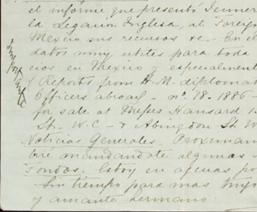 el informe que presento Jenner
la Legacion Inglesa, al Foreign
Mexico sus recursos &c. En el
datos muy utiles para toda
cios en Mexico y especialmente
Reports from H.M. diplomat
Officers abroad - No. 18. 1886 -
for sale at Messrs Hansard
St. W.C. - & Abingdon St. W
Noticias Generales. Proximam
mandandote algunas
fondos. Estoy en apuros po
Sin tiempo para mas
y amante hermano
Importante